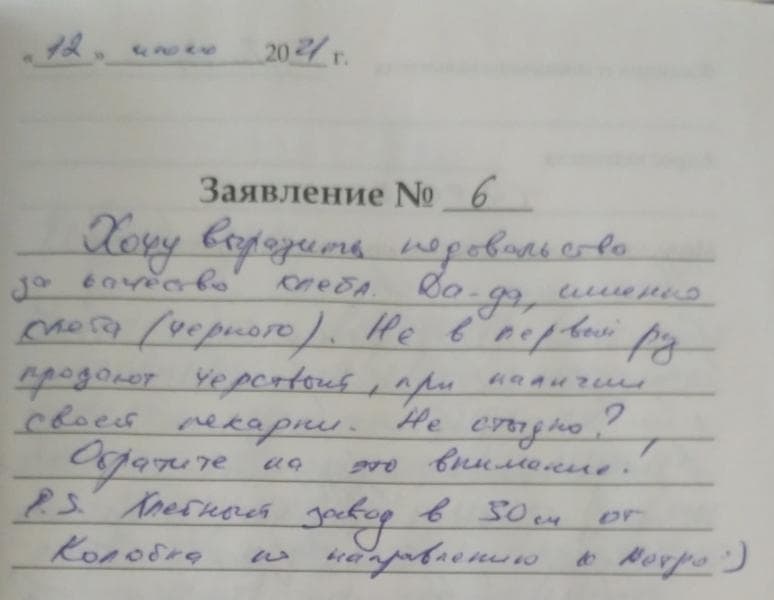 «12» июля 2021 г.
Заявление № 6
Хочу выразить недовольство
за качество хлеба. Да-да, именно
хлеба (черного). Не в первый раз
продают черствый, при наличии
своей пекарни. Не стыдно?
Обратите на это внимание!
P.S. Хлебный завод в 50 м от
Колобка по направлению к метро :)